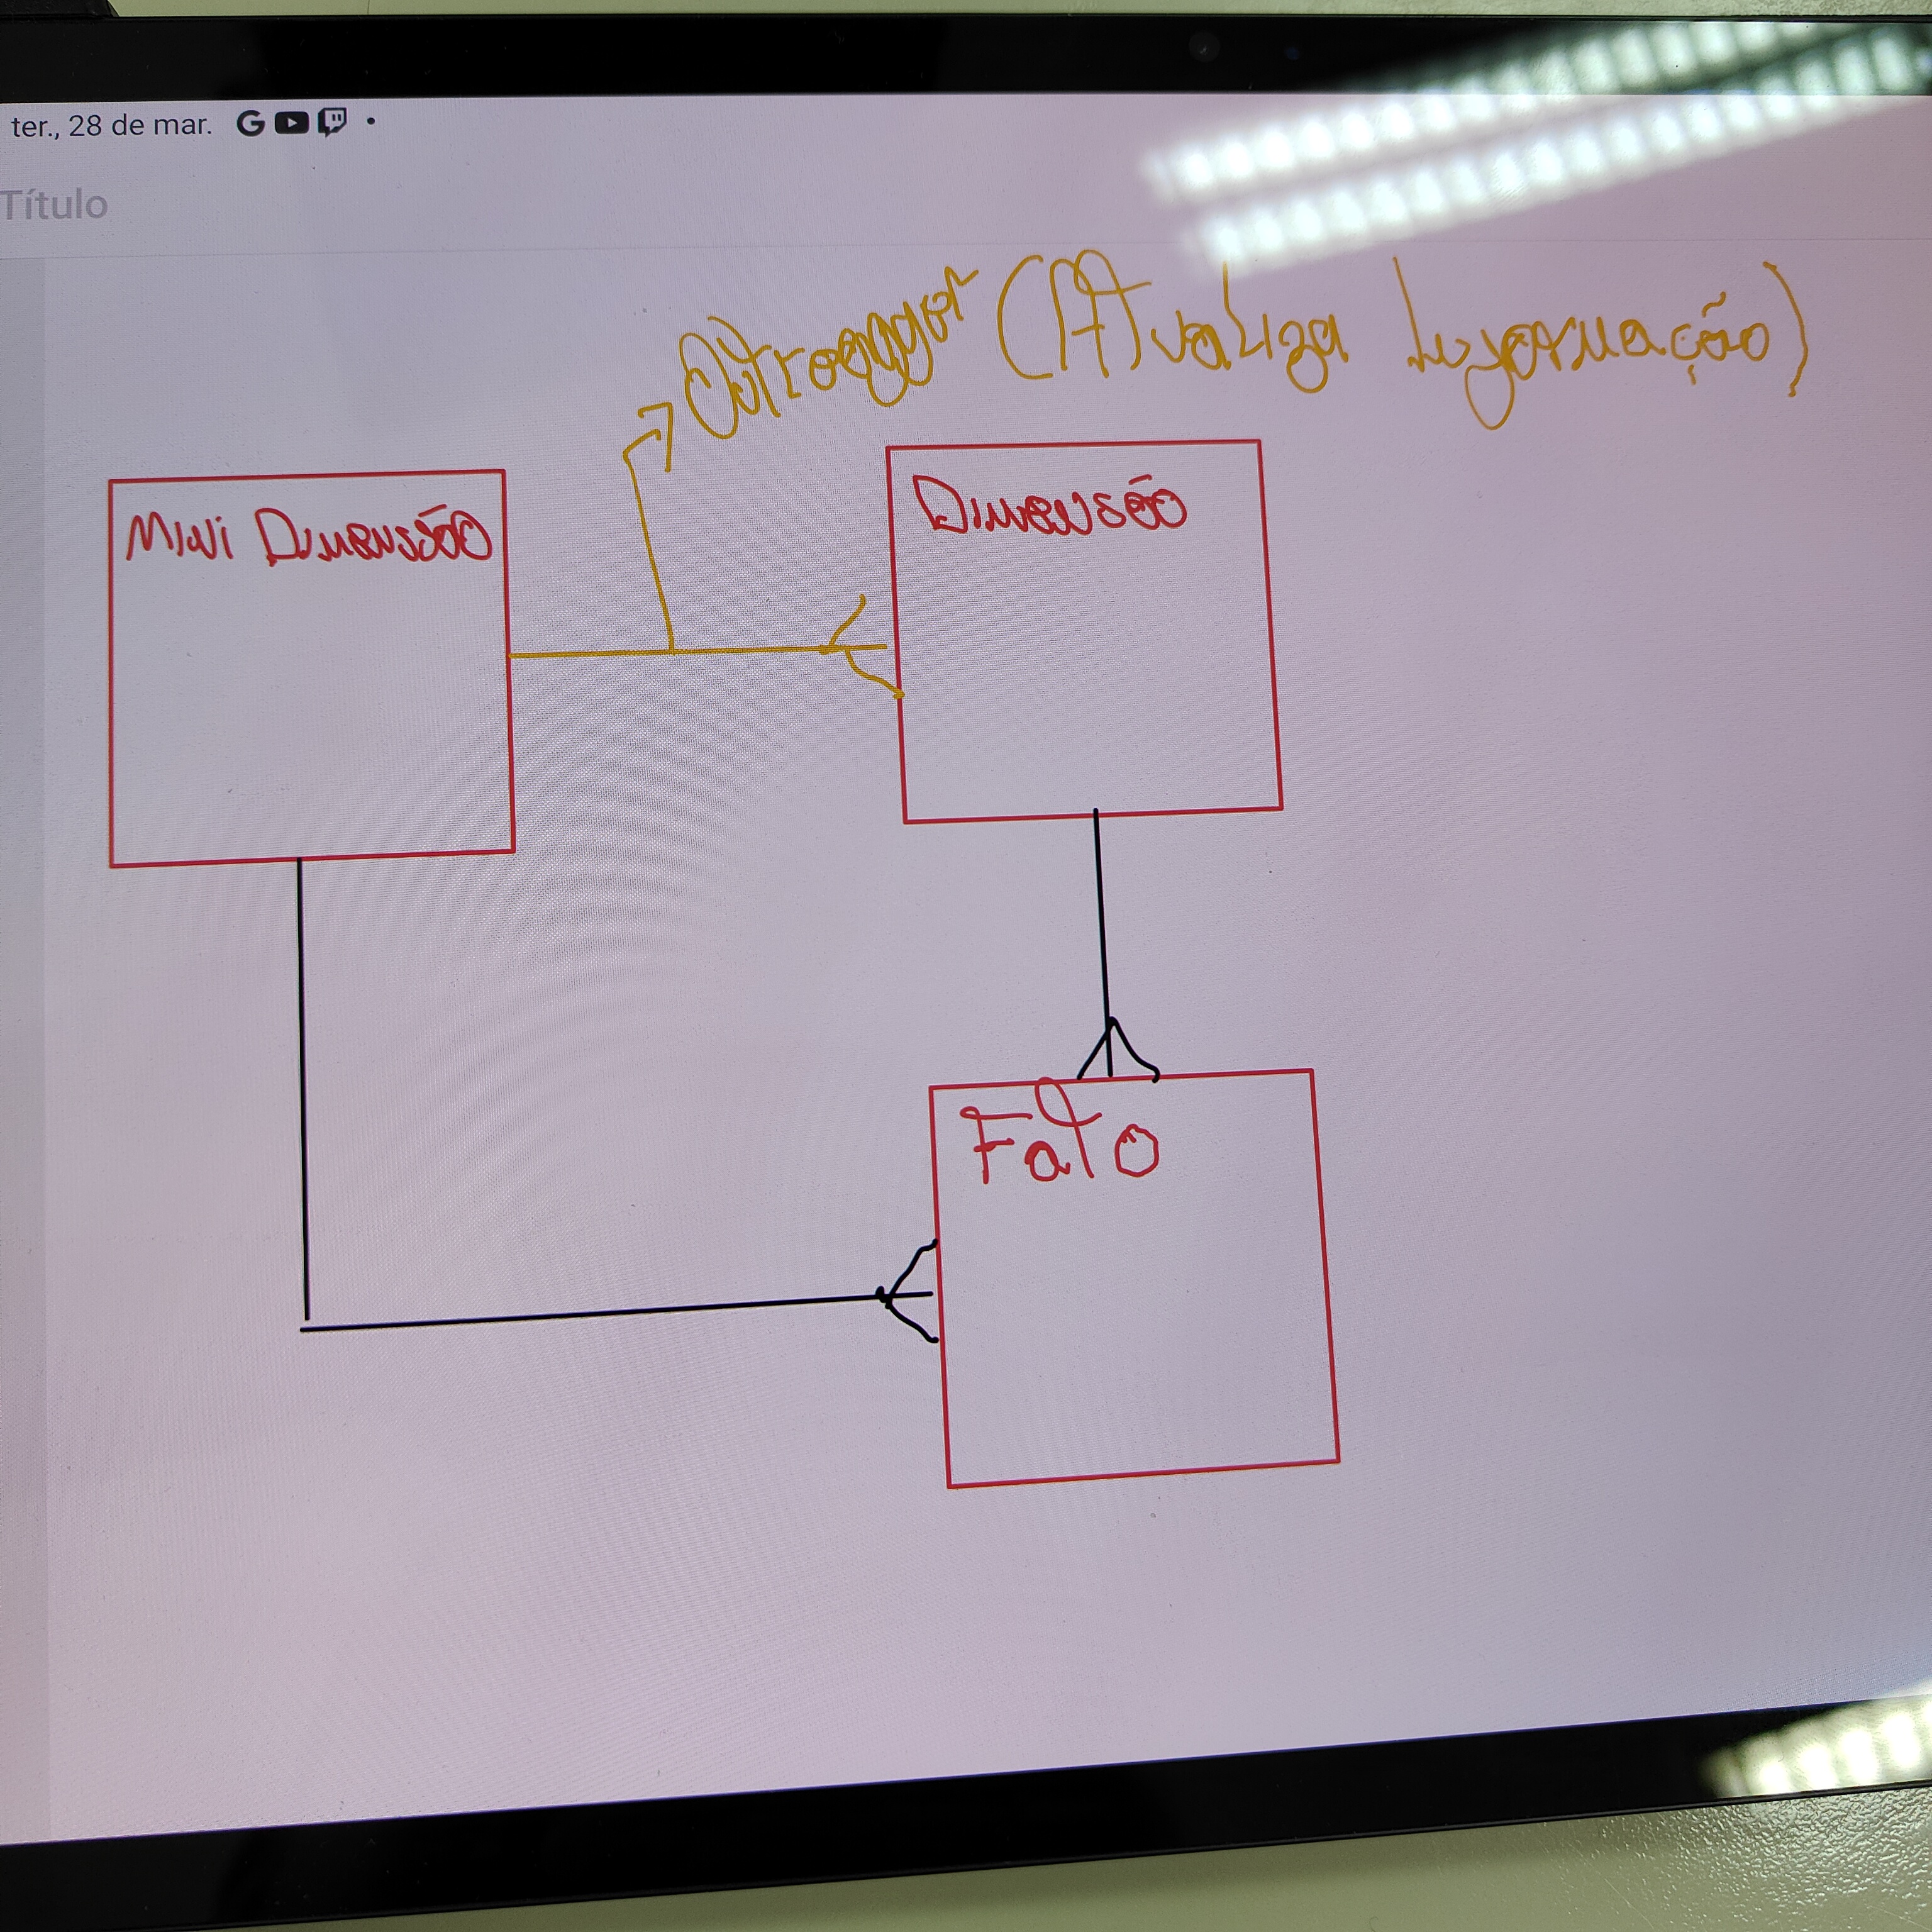 ter., 28 de mar.
Título
(Atualiza Informação)
Mini Dimensão
Dimensão
Fato